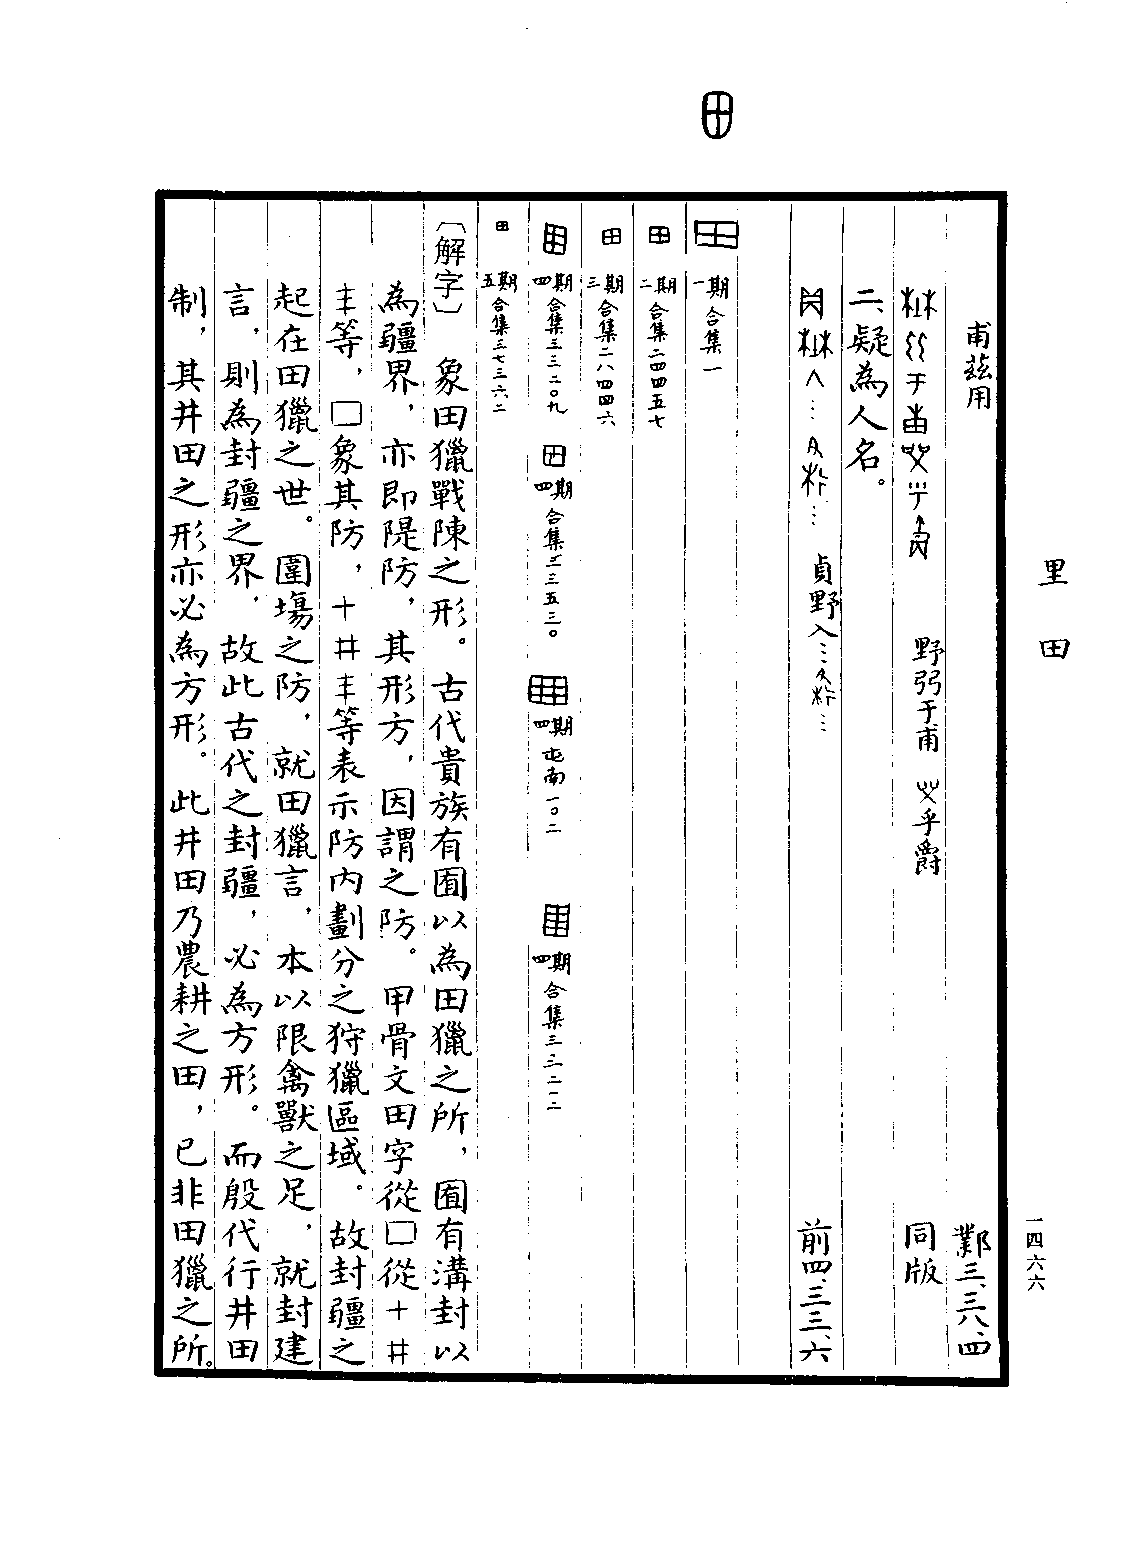 里 田
一四六六
甫茲用 鄴三、三八、四
野弜于甫 乎爵 同版
二、疑為人名。
貞野入… 前四、三三、六
一期 合集一
二期 合集二四四五七
三期 合集二八四四六
四期 合集三三二〇九 四期 四期 屯南一〇二 四期 合集三三二一二
五期 合集三七三六二
〔解字〕 象田獵戰陳之形。古代貴族有囿以為田獵之所,囿有溝封以
為疆界,亦即隄防,其形方,因謂之防。甲骨文田字從囗從十井
丰等,囗象其防,十井丰等表示防內劃分之狩獵區域。故封疆之
起在田獵之世。圍場之防,就田獵言,本以限禽獸之足,就封建
言,則為封疆之界,故此古代之封疆,必為方形。而殷代行井田
制,其井田之形亦必為方形。此井田乃農耕之田,已非田獵之所。